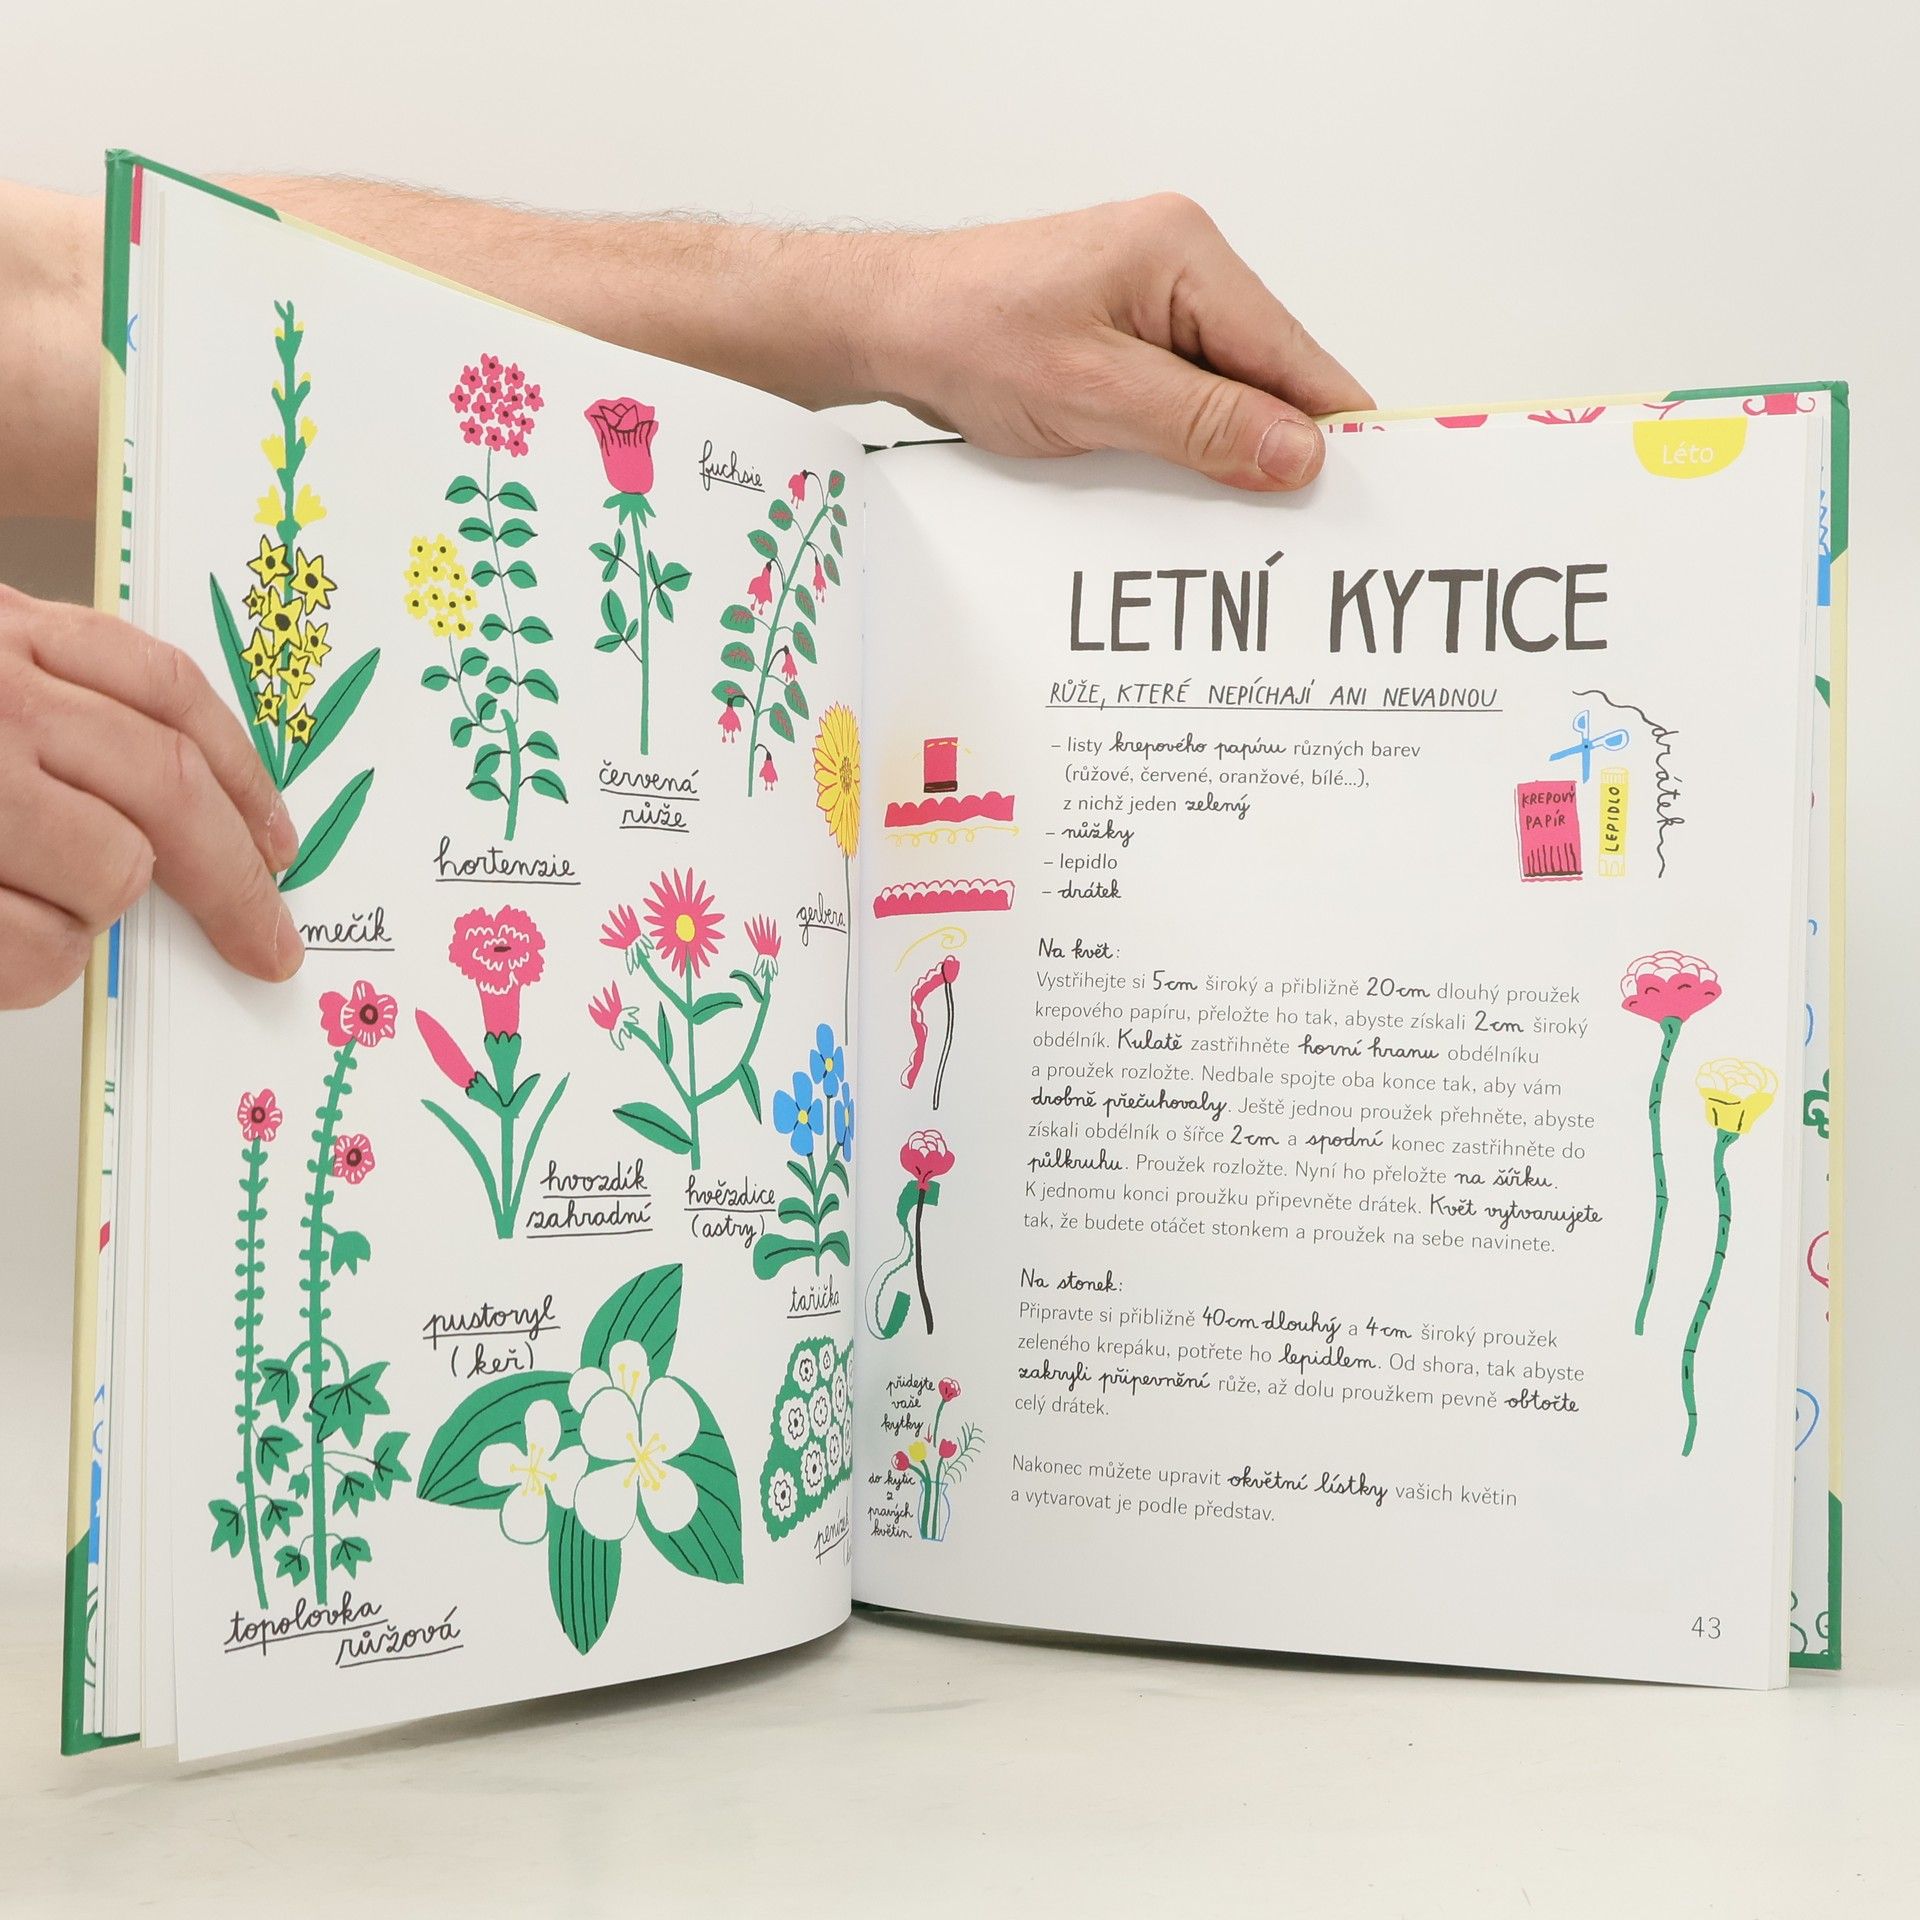 fuchsie
červená
růže
hortenzie
mečík
gerbera
hvozdík
zahradní
hvězdice
(astry)
tařička
pustoryl
(keř)
topolovka
růžová
Léto
LETNÍ KYTICE
RŮŽE, KTERÉ NEPÍCHAJÍ ANI NEVADNOU
– listy krepového papíru různých barev
(růžové, červené, oranžové, bílé...),
z nichž jeden zelený
– nůžky
– lepidlo
– drátek
drátek
KREPOVÝ
PAPÍR
LEPIDLO
Na květ:
Vystřihejte si 5cm široký a přibližně 20cm dlouhý proužek
krepového papíru, přeložte ho tak, abyste získali 2cm široký
obdélník. Kulatě zastřihněte horní hranu obdélníku
a proužek rozložte. Nedbale spojte oba konce tak, aby vám
drobně přečuhovaly. Ještě jednou proužek přehněte, abyste
získali obdélník o šířce 2cm a spodní konec zastřihněte do
půlkruhu. Proužek rozložte. Nyní ho přeložte na šířku.
K jednomu konci proužku připevněte drátek. Květ vytvarujete
tak, že budete otáčet stonkem a proužek na sebe navinete.
Na stonek:
Připravte si přibližně 40cm dlouhý a 4cm široký proužek
zeleného krepáku, potřete ho lepidlem. Od shora, tak abyste
zakryli připevnění růže, až dolu proužkem pevně obtočte
celý drátek.
Nakonec můžete upravit okvětní lístky vašich květin
a vytvarovat je podle představ.
přidejte
vaše
kytky
do kytic
z
pravých
květin
43